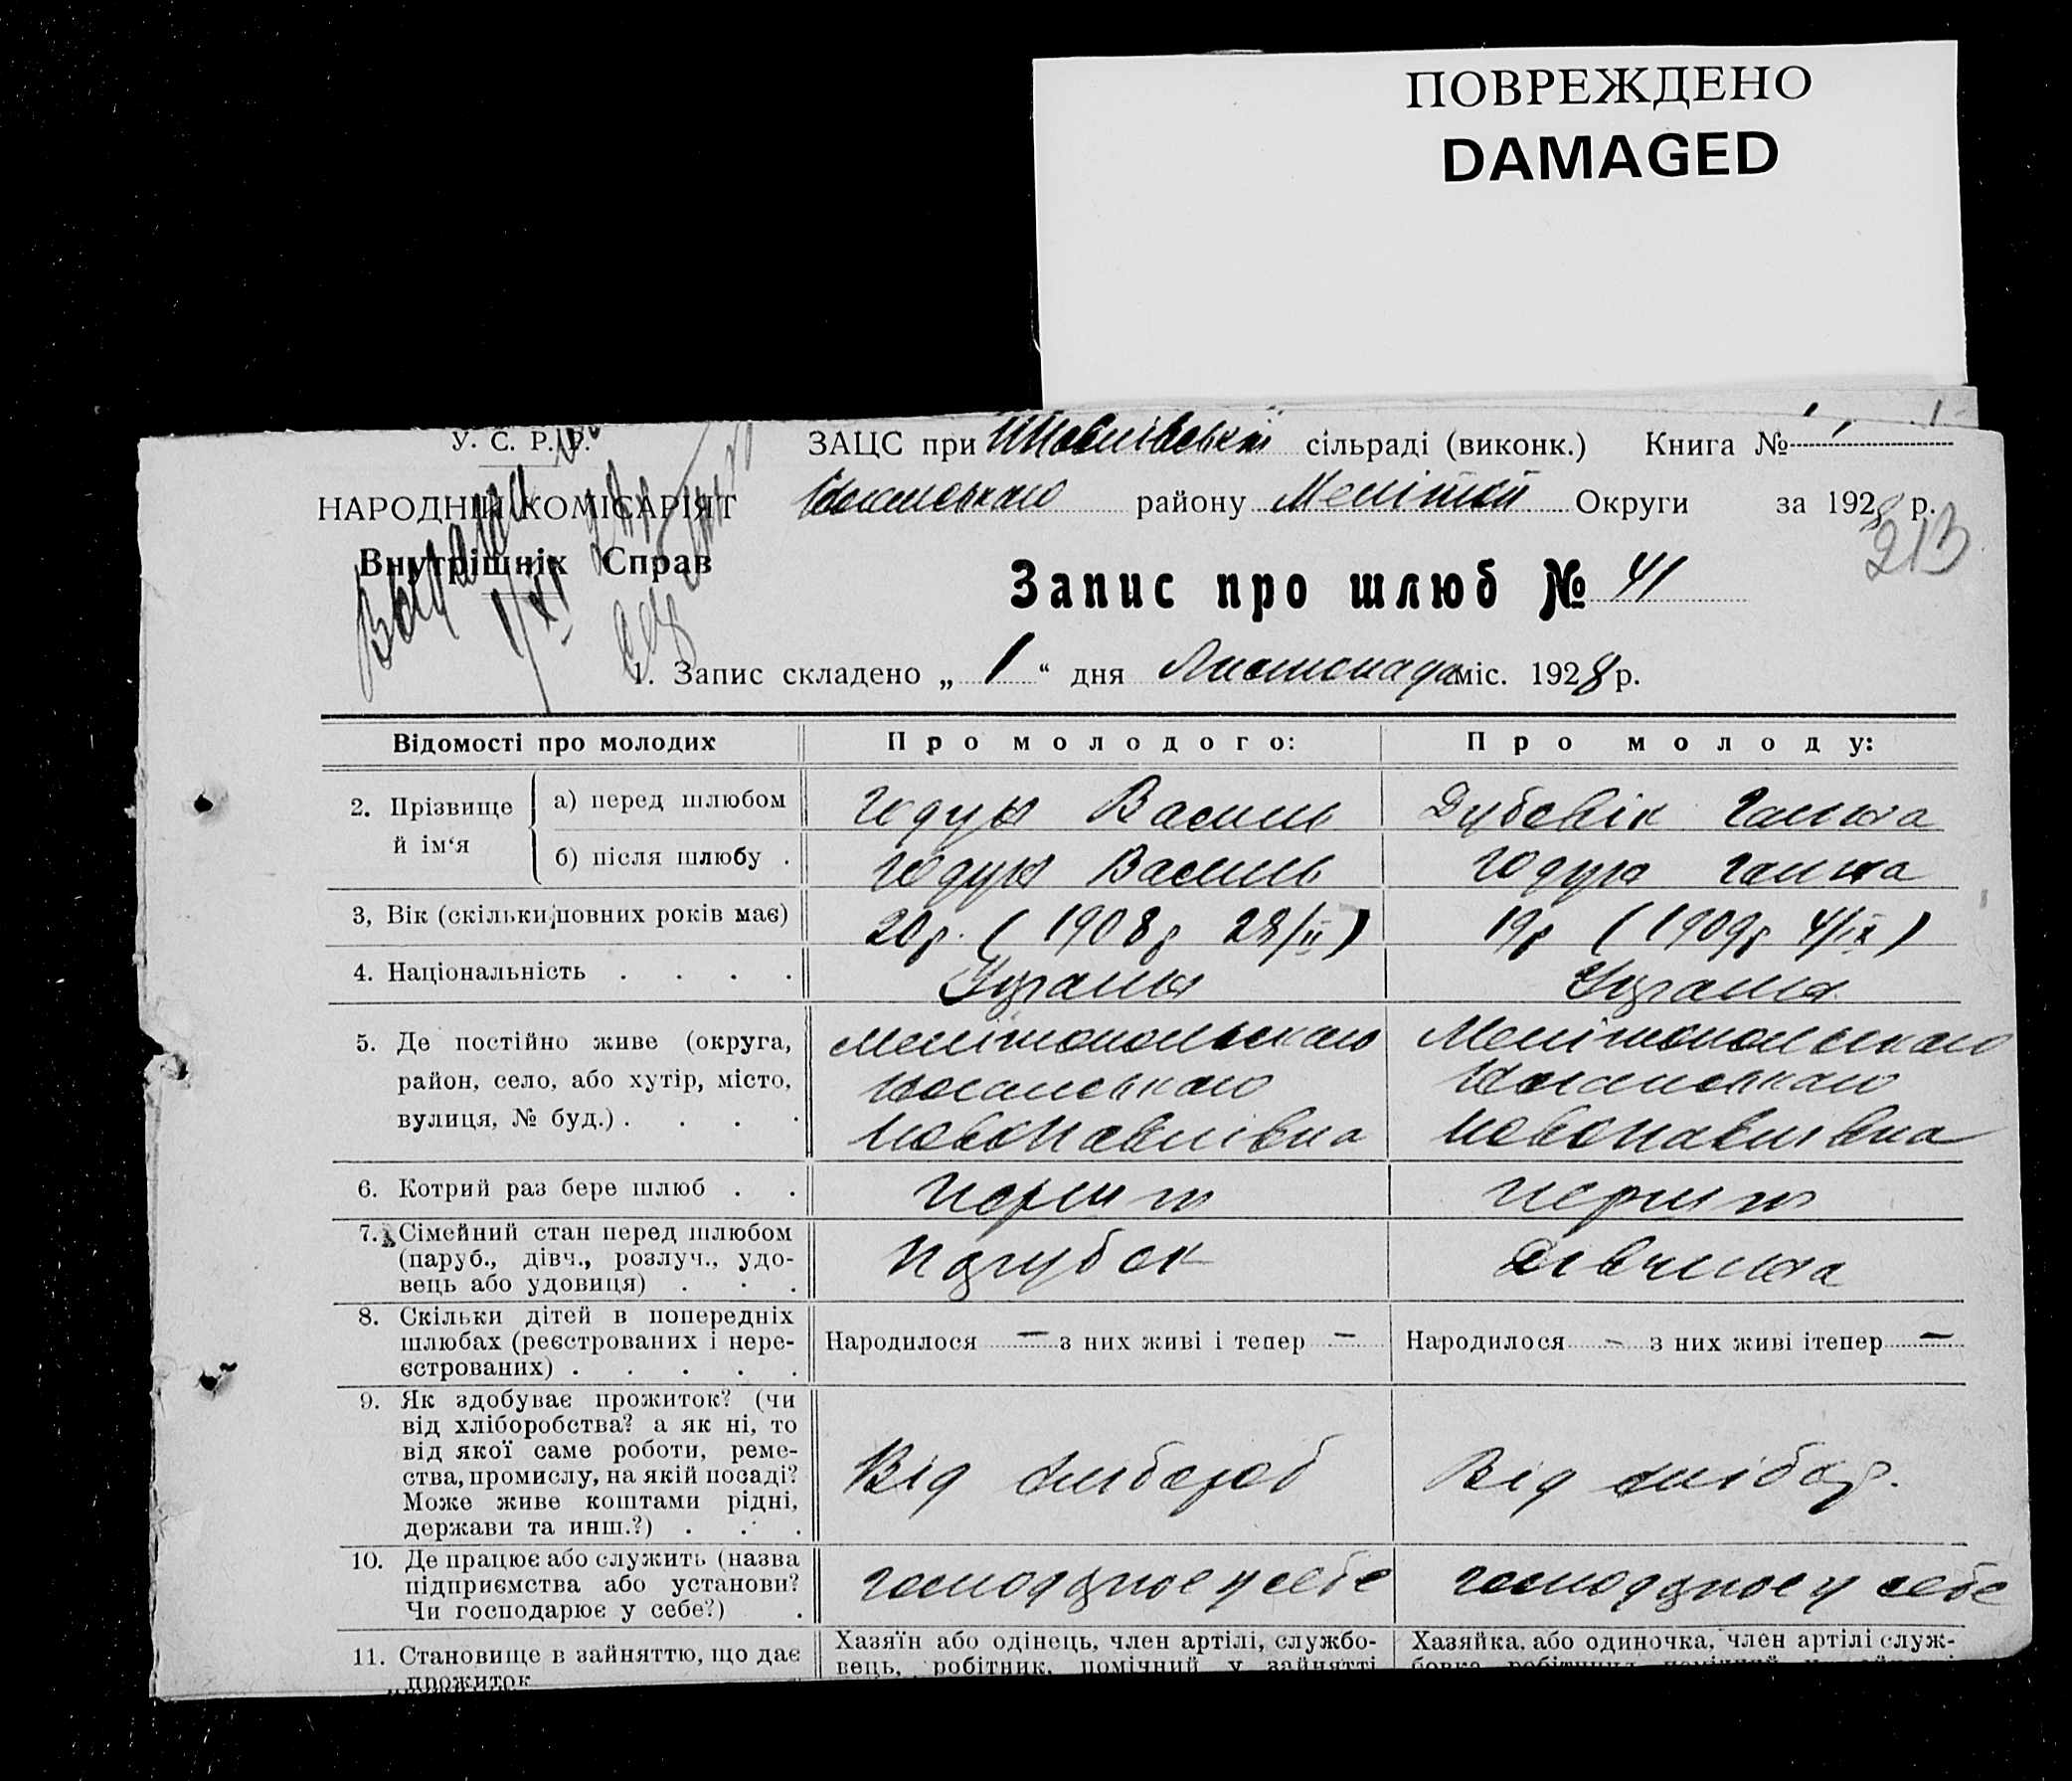 ПОВРЕЖДЕНО
DAMAGED
У. С. Р. Р.
ЗАЦС при сільраді (виконк.) Книга №
НАРОДНІЙ КОМІСАРІЯТ
району Меліт Округи за 1928 р.
213
Внутрішніх Справ
Запис про шлюб № 41
1. Запис складено „ 1 “ дня Листопада міс. 1928 р.
Відомості про молодих
Про молодого:
Про молоду:
2. Прізвище й ім‘я
а) перед шлюбом
Годун Василь
Дубовік Ганна
б) після шлюбу .
Годун Василь
Годун Ганна
3, Вік (скільки повних років має)
20 р. ( 1908 р 28/II )
19 р ( 1909 р 4/IX )
4. Національність . . . .
Украин
Украин
5. Де постійно живе (округа,
район, село, або хутір, місто,
вулиця, № буд.) . . . .
Мелітопольского
Новопавлівка
Мелітопольского
Новопавлівка
6. Котрий раз бере шлюб . .
перший
перший
7. Сімейний стан перед шлюбом
(паруб., дівч., розлуч., удо-
вець або удовиця) . . .
Парубок
Дівчина
8. Скільки дітей в попередніх
шлюбах (реєстрованих і нере-
єстрованих) . . . . .
Народилося — з них живі і тепер —
Народилося — з них живі ітепер —
9. Як здобуває прожиток? (чи
від хліборобства? а як ні, то
від якої саме роботи, реме-
ства, промислу, на якій посаді?
Може живе коштами рідні,
держави та инш.?) . . .
Від хлібороб
Від хлібор.
10. Де працює або служить (назва
підприємства або установи?
Чи господарює у себе?) .
господарює у себе
господарює у себе
11. Становище в зайняттю, що дає
прожиток
Хазяїн або одінець, член артілі, службо-
вець, робітник, помічний у зайнятті
Хазяйка, або одиночка, член артілі служ-
бовка